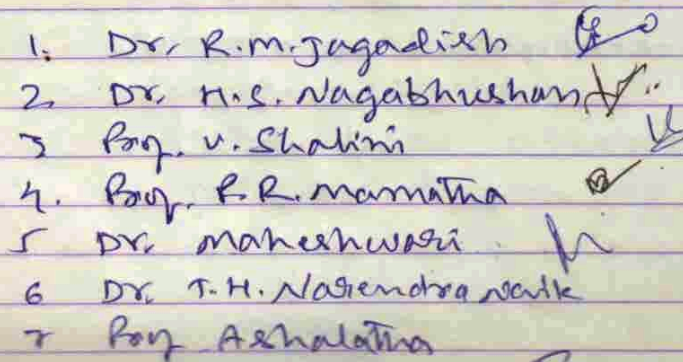 1. Dr. R.m. Jagadish
2 Dr. H.S. Nagabhushan
3 Prof. V. Shalini
4. Prof. P.R. Mamatha
5 Dr. Maheshwari
6 Dr. T.H. Narendra Naik
7 Prof Ashalatha